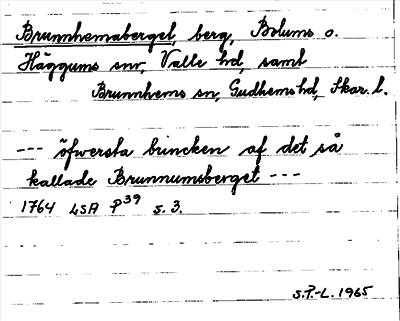 Brunnhemsberget, berg, Bolums o.
Häggums snr, Valle hd, samt
Brunnhems sn, Gudhems hd, Skar. l.
--- öfwersta brincken af det så
kallade Brunnumsberget ---
1764 LSA P³⁹ s. 3.
S.P.-L. 1965